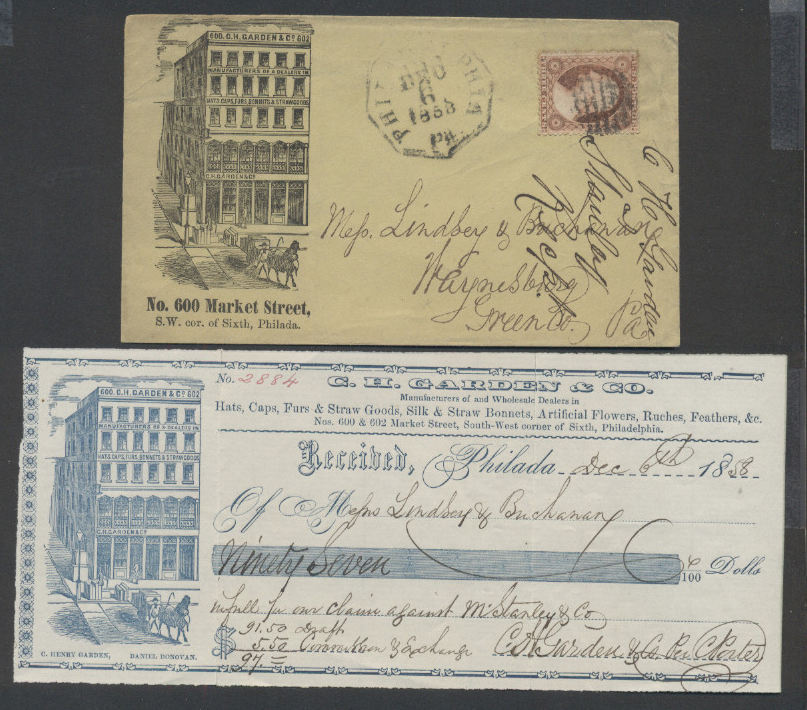 600. C.H. GARDEN & Co 602
MANUFACTURERS OF & DEALERS IN
HATS, CAPS, FURS, BONNETS & STRAW GOODS
C.H. GARDEN & Co
No. 600 Market Street,
S.W. cor. of Sixth, Philada.
PHILADELPHIA
DEC
6
1858
Pa.
C H Garden
Stanley
Recpt
Mess. Lindsey & Buchanan
Waynesburg
Green Co. Pa
600 C.H. GARDEN & Co 602
MANUFACTURERS OF & DEALERS IN
HATS, CAPS, FURS, BONNETS & STRAW GOODS
C.H. GARDEN & Co
C. HENRY GARDEN, DANIEL DONOVAN.
No. 2884
C. H. GARDEN & CO.
Manufacturers of and Wholesale Dealers in
Hats, Caps, Furs & Straw Goods, Silk & Straw Bonnets, Artificial Flowers, Ruches, Feathers, &c.
Nos. 600 & 602 Market Street, South-West corner of Sixth, Philadelphia.
Received, Philada Dec 6th 1858
Of Messrs Lindsey & Buchanan
Ninety Seven /100 Dolls
in full for our claim against McStanley & Co
$ 91.50 Draft
5.50 Commission & Exchange
97 C H Garden & Co Per C Porter